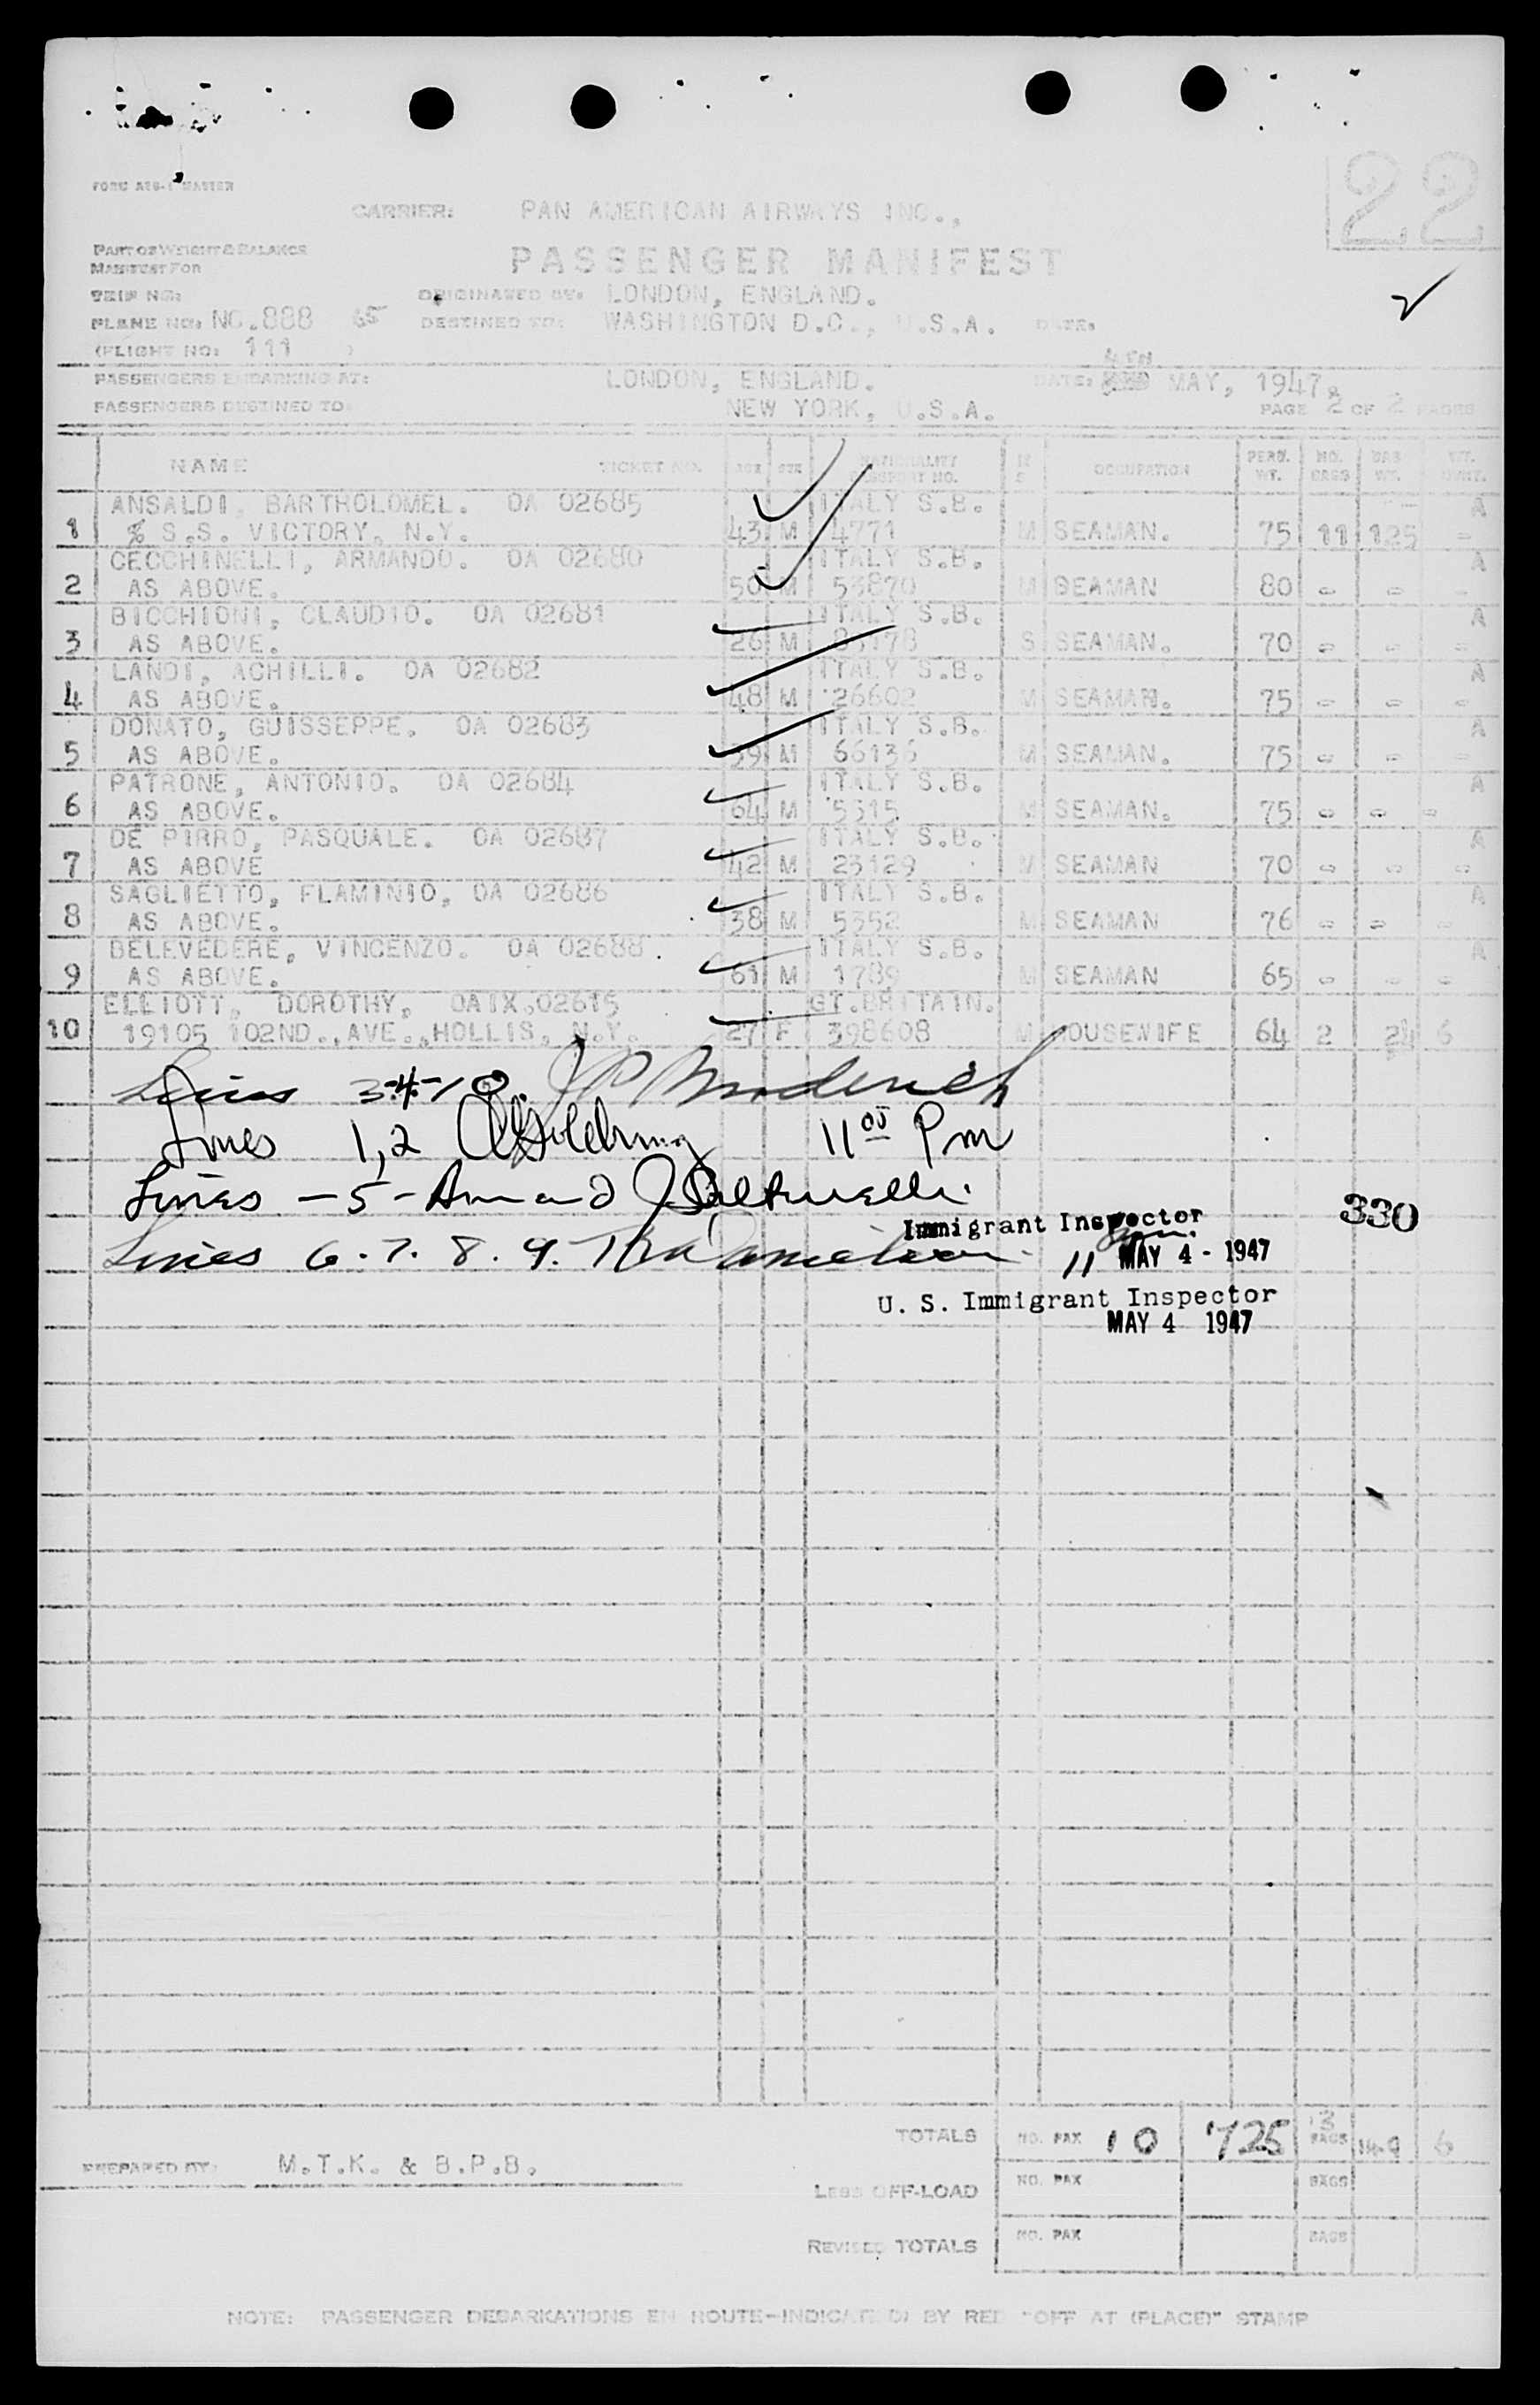 FORM
22
CARRIER: PAN AMERICAN AIRWAYS INC.,
PART OF WEIGHT & BALANCE
MANIFEST FOR
PASSENGER MANIFEST
TRIP NO:
ORIGINATED BY: LONDON, ENGLAND.
PLANE NO: NC.888 65 DESTINED TO: WASHINGTON D.C., U.S.A. DATE:
(FLIGHT NO: 111 )
4TH
PASSENGERS EMBARKING AT: LONDON, ENGLAND. DATE: MAY, 1947.
PASSENGERS DESTINED TO: NEW YORK, U.S.A. PAGE 2 OF 2 PAGES
NAME TICKET NO. AGE SEX NATIONALITY PASSPORT NO. M S OCCUPATION PERS. WT. NO. BAGS BAG WT.
ANSALDI, BARTHOLOMEL. OA 02685 ITALY S.B. A
1 % S.S. VICTORY, N.Y. 43 M 4771 M SEAMAN. 75 11 125 -
CECCHINELLI, ARMANDO. OA 02680 ITALY S.B. A
2 AS ABOVE. 50 M 53870 M SEAMAN 80 - - -
BICCHIONI, CLAUDIO. OA 02681 ITALY S.B. A
3 AS ABOVE. 26 M S SEAMAN. 70 - - -
LANDI, ACHILLI. OA 02682 ITALY S.B. A
4 AS ABOVE. 48 M 26602 M SEAMAN. 75 - - -
DONATO, GUISSEPPE. OA 02683 ITALY S.B. A
5 AS ABOVE. 39 M 66136 M SEAMAN. 75 - - -
PATRONE, ANTONIO. OA 02684 ITALY S.B. A
6 AS ABOVE. 64 M 5315 M SEAMAN. 75 - - -
DE PIRRO, PASQUALE. OA 02687 ITALY S.B. A
7 AS ABOVE 42 M 23129 M SEAMAN 70 - - -
SAGLIETTO, FLAMINIO, OA 02686 ITALY S.B. A
8 AS ABOVE. 38 M 5352 M SEAMAN 76 - - -
BELEVEDERE, VINCENZO. OA 02688 ITALY S.B. A
9 AS ABOVE. 61 M 1789 M SEAMAN 65 - - -
ELLIOTT, DOROTHY, OAIX,02615 GT.BRITAIN.
10 19105 102ND.,AVE.,HOLLIS, N.Y. 27 F 398608 M HOUSEWIFE 64 2 24 6
Lines 3-4-10. JP Broderick
Lines 1,2 11 00 Pm
Lines - 5 - Armand J
330
Immigrant Inspector
Lines 6. 7. 8. 9. 11 MAY 4 - 1947
U. S. Immigrant Inspector
MAY 4 1947
TOTALS NO. PAX 10 725 13 BAGS 149 6
PREPARED BY: M.T.K. & B.P.B.
LESS OFF-LOAD NO. PAX BAGS
REVISED TOTALS NO. PAX BAGS
NOTE: PASSENGER DEBARKATIONS EN ROUTE-INDICATED BY RED "OFF AT (PLACE)" STAMP